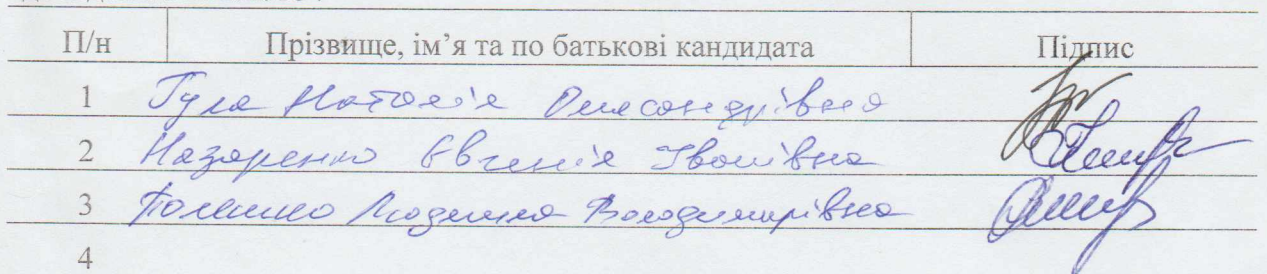 П/н Прізвище, ім’я та по батькові кандидата Підпис
1 Гула Наталія Олександрівна
2 Назаренко Євгенія Іванівна
3 Людмила Володимирівна
4